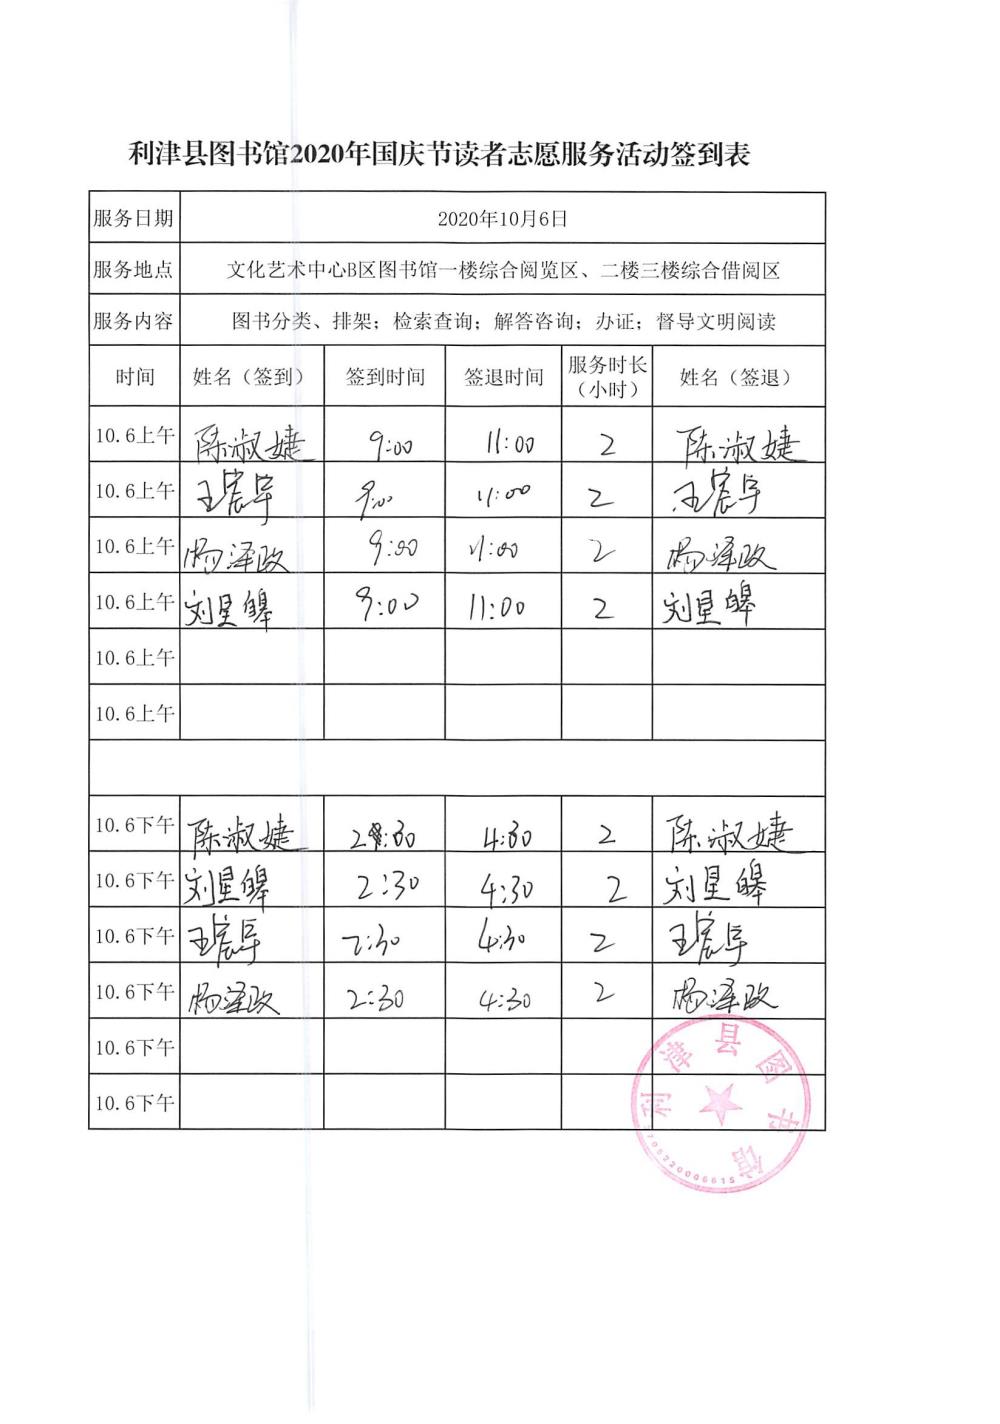 利津县图书馆2020年国庆节读者志愿服务活动签到表
服务日期 2020年10月6日
服务地点 文化艺术中心B区图书馆一楼综合阅览区、二楼三楼综合借阅区
服务内容 图书分类、排架；检索查询；解答咨询；办证；督导文明阅读
时间 姓名（签到） 签到时间 签退时间 服务时长（小时） 姓名（签退）
10.6上午 陈淑婕 9:00 11:00 2 陈淑婕
10.6上午 王宸宇 9:00 11:00 2 王宸宇
10.6上午 杨泽政 9:00 11:00 2 杨泽政
10.6上午 刘星皞 9:00 11:00 2 刘星皞
10.6上午
10.6上午
10.6下午 陈淑婕 2:30 4:30 2 陈淑婕
10.6下午 刘星皞 2:30 4:30 2 刘星皞
10.6下午 王宸宇 2:30 4:30 2 王宸宇
10.6下午 杨泽政 2:30 4:30 2 杨泽政
10.6下午
10.6下午
利津县图书馆